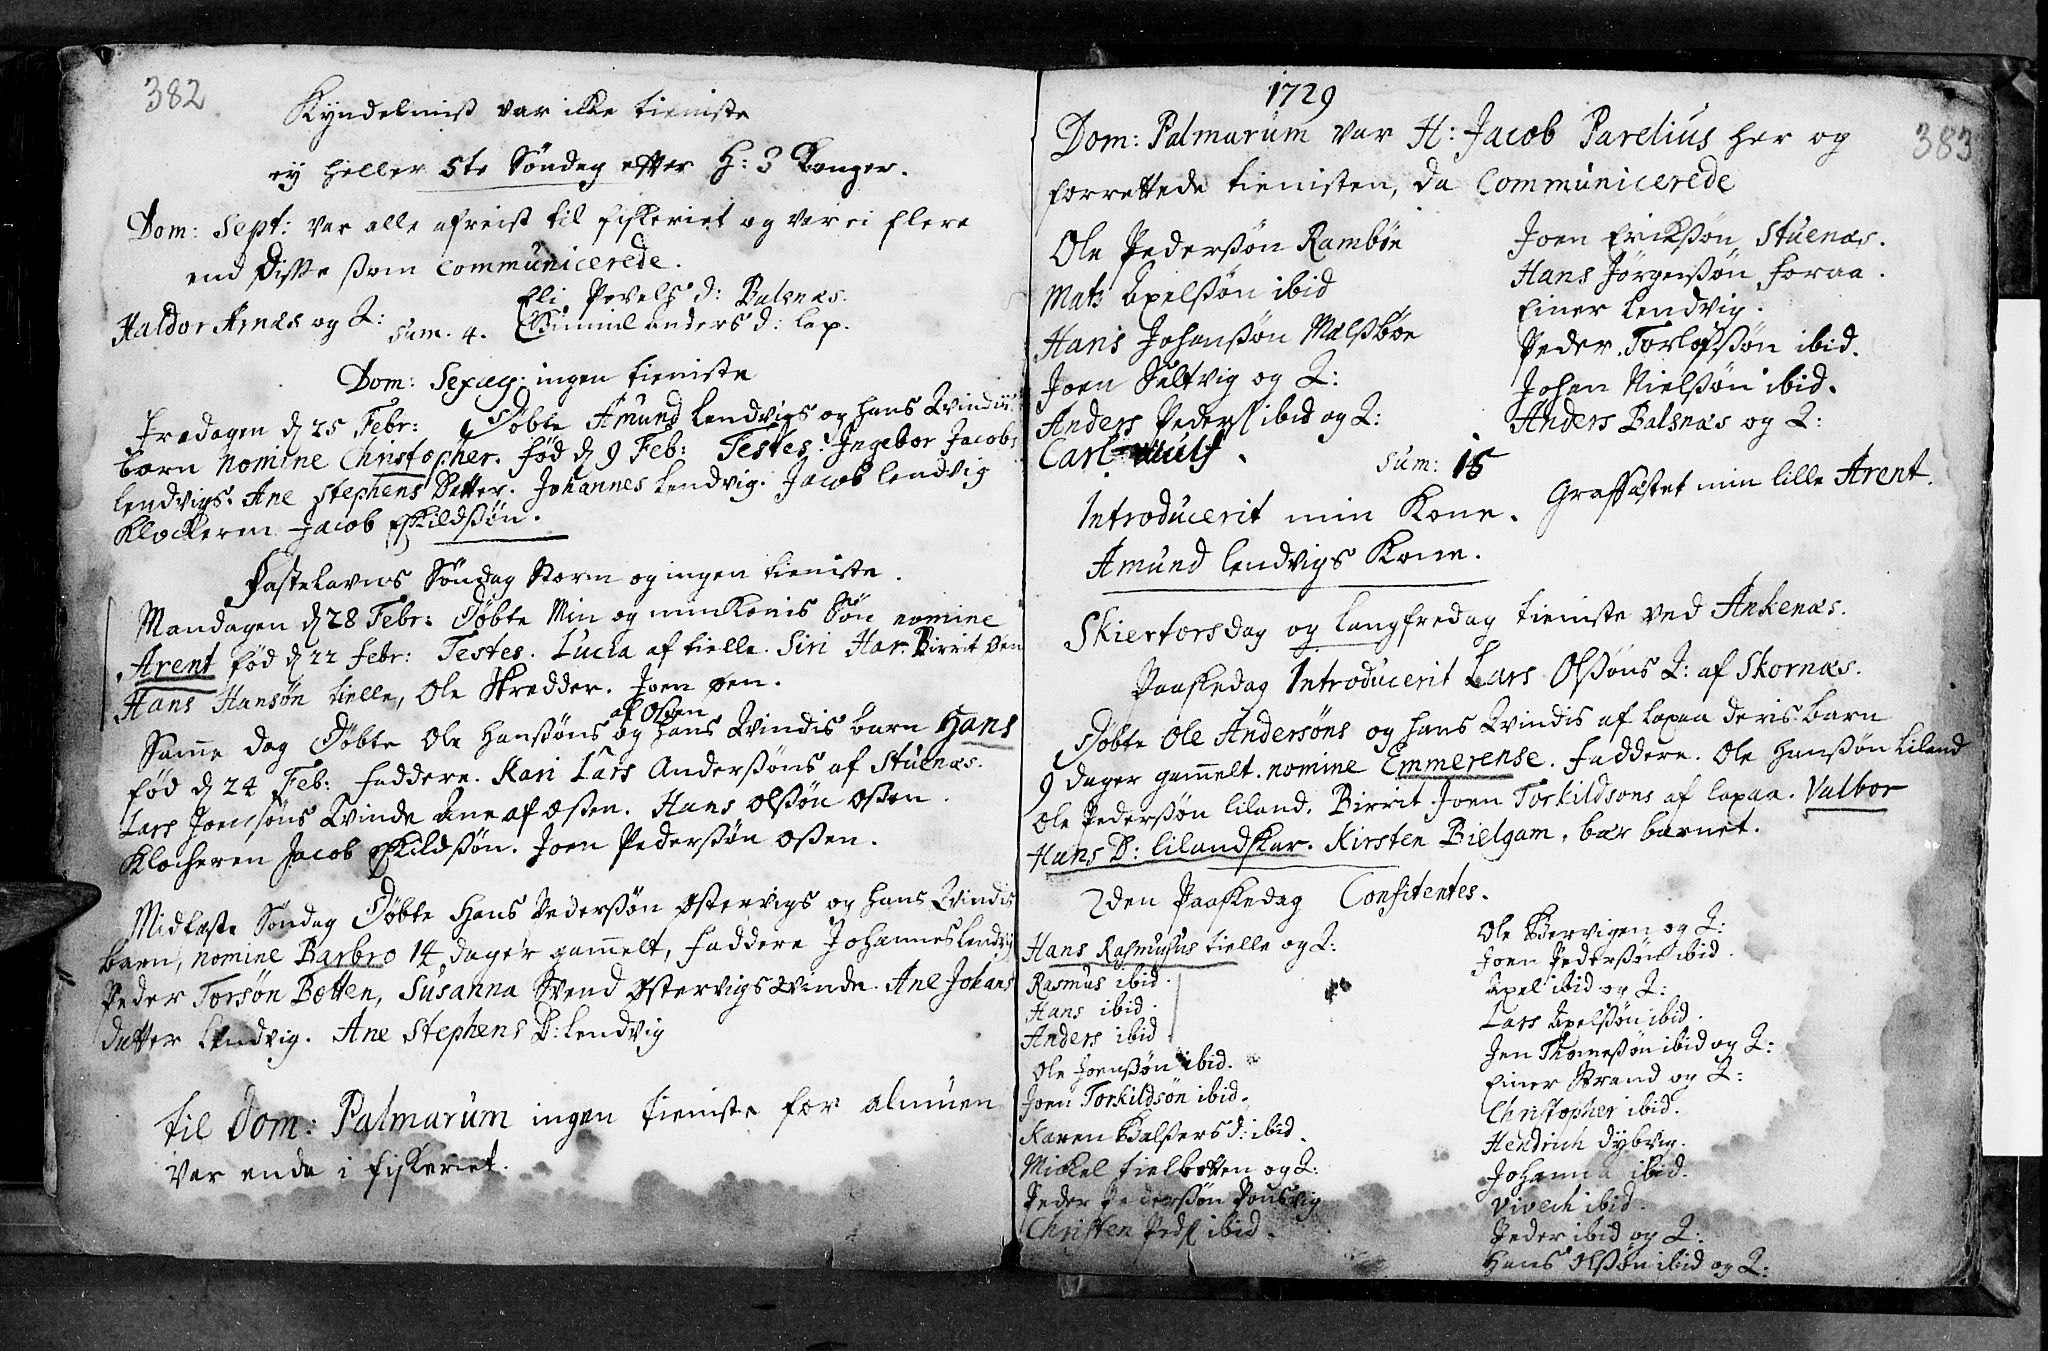 382
Kyndelmiss var ikke tieniste
ey heller 5te Søndag efter H: 3 Konger.
Dom: Sept: var alle afreist til fiskeriet og var ei flere
end disse som communicerede.
Haldor Arnæs og Q: Eli Povels d: Balsnæs.
sum. 4. Gunnild anders d: lap.
Dom: Sexag: ingen tieniste
Fredagen d 25 Febr: Døbte Amund Lendvigs og hans Qvindis
barn nomine Christopher. fød d 9 Feb: Testes: Ingebor Jacobs
lendvigs. Ane Stephens Datter. Johannes Lendvig. Jacob lendvig
Klockeren Jacob Eskildsøn.
Fastelavns Søndag Storm og ingen tieniste.
Mandagen d 28 Febr: Døbte Min og min Konis Søn nomine
Arent fød d 22 febr: Testes. Lucia af tielle. Siri Har. Birrit øen
Hans Hansøn tielle, Ole Skredder. Joen øen.
af Osen
Same dag Døbte Ole Hanssøns og hans Qvindis barn Hans
fød d 24 Feb: faddere. Kari Lars Anderssøns af Stuenæs.
Lars Joenssøns Qvinde Ane af Osen. Hans Olssøn Osen.
Klocheren Jacob Eskildssøn. Joen Pederssøn Osen.
Midfaste Søndag Døbte Hans Pederssøn Østervigs og hans Qvindis
barn, nomine Barbro 14 dager gamelt, faddere Johannes Lendvig
Peder Torsøn Botten, Susanna Svend Østervigs Qvinde. Ane Johans
datter lendvig. Ane Stephens D: lendvig
til Dom: Palmarum ingen tieniste for almuen
var enda i fiskeriet.
1729
383
Dom: Palmarum var H: Jacob Parelius her og
forrettede tienisten, da Communicerede
Ole Pederssøn Rambøn
Mats Axelssøn ibid
Hans Johanssøn Mælssbøn
Joen Saltvig og Q:
Anders Peders ibid og Q:
Carl
Joen Erickssøn Stuenæs.
Hans Jørgenssøn foraa.
Einer Lendvig.
Peder Torlofssøn ibid.
Johan Nielssøn ibid.
Anders Balsnæs og Q:
sum: 15
Introducerit min Kone. Graffæstet min lille Arent.
Amund lendvigs Kone.
Skiertorsdag og langfredag tieniste ved Ankenæs.
Paaskedag Introducerit Lars Olssøns Q: af Skornæs.
Døbte Ole Andersøns og hans Qvindis af lapaa deris barn
9 dager gamelt. nomine Emmerense. Faddere. Ole Hanssøn Liland
Ole Pederssøn liland. Birrit Joen Torkildsons af lapaa. Valbor
Hans D: lilandskar. Kirsten Bielgam, bær barnet.
2den Paaskedag Confitentes.
Hans Rasmussøns tielle og Q:
Rasmus ibid.
Hans ibid.
Anders ibid
Ole Joenssøn ibid.
Joen Torkildsøn ibid.
Karen Balsers d: ibid.
Mickel tielbotten og Q:
Peder Pederssøn Ponsvig
Christen Peds ibid.
Ole Bervigen og Q:
Joen Pederssøn ibid.
Axel ibid og Q:
Lars Axelssøn ibid.
Jen Thomessøn ibid og Q:
Einer Strand og Q:
Christopher ibid.
Hendrich Dybvig.
Johanna ibid.
Vivech ibid.
Peder ibid og Q:
Hans Olssøn ibid og Q: